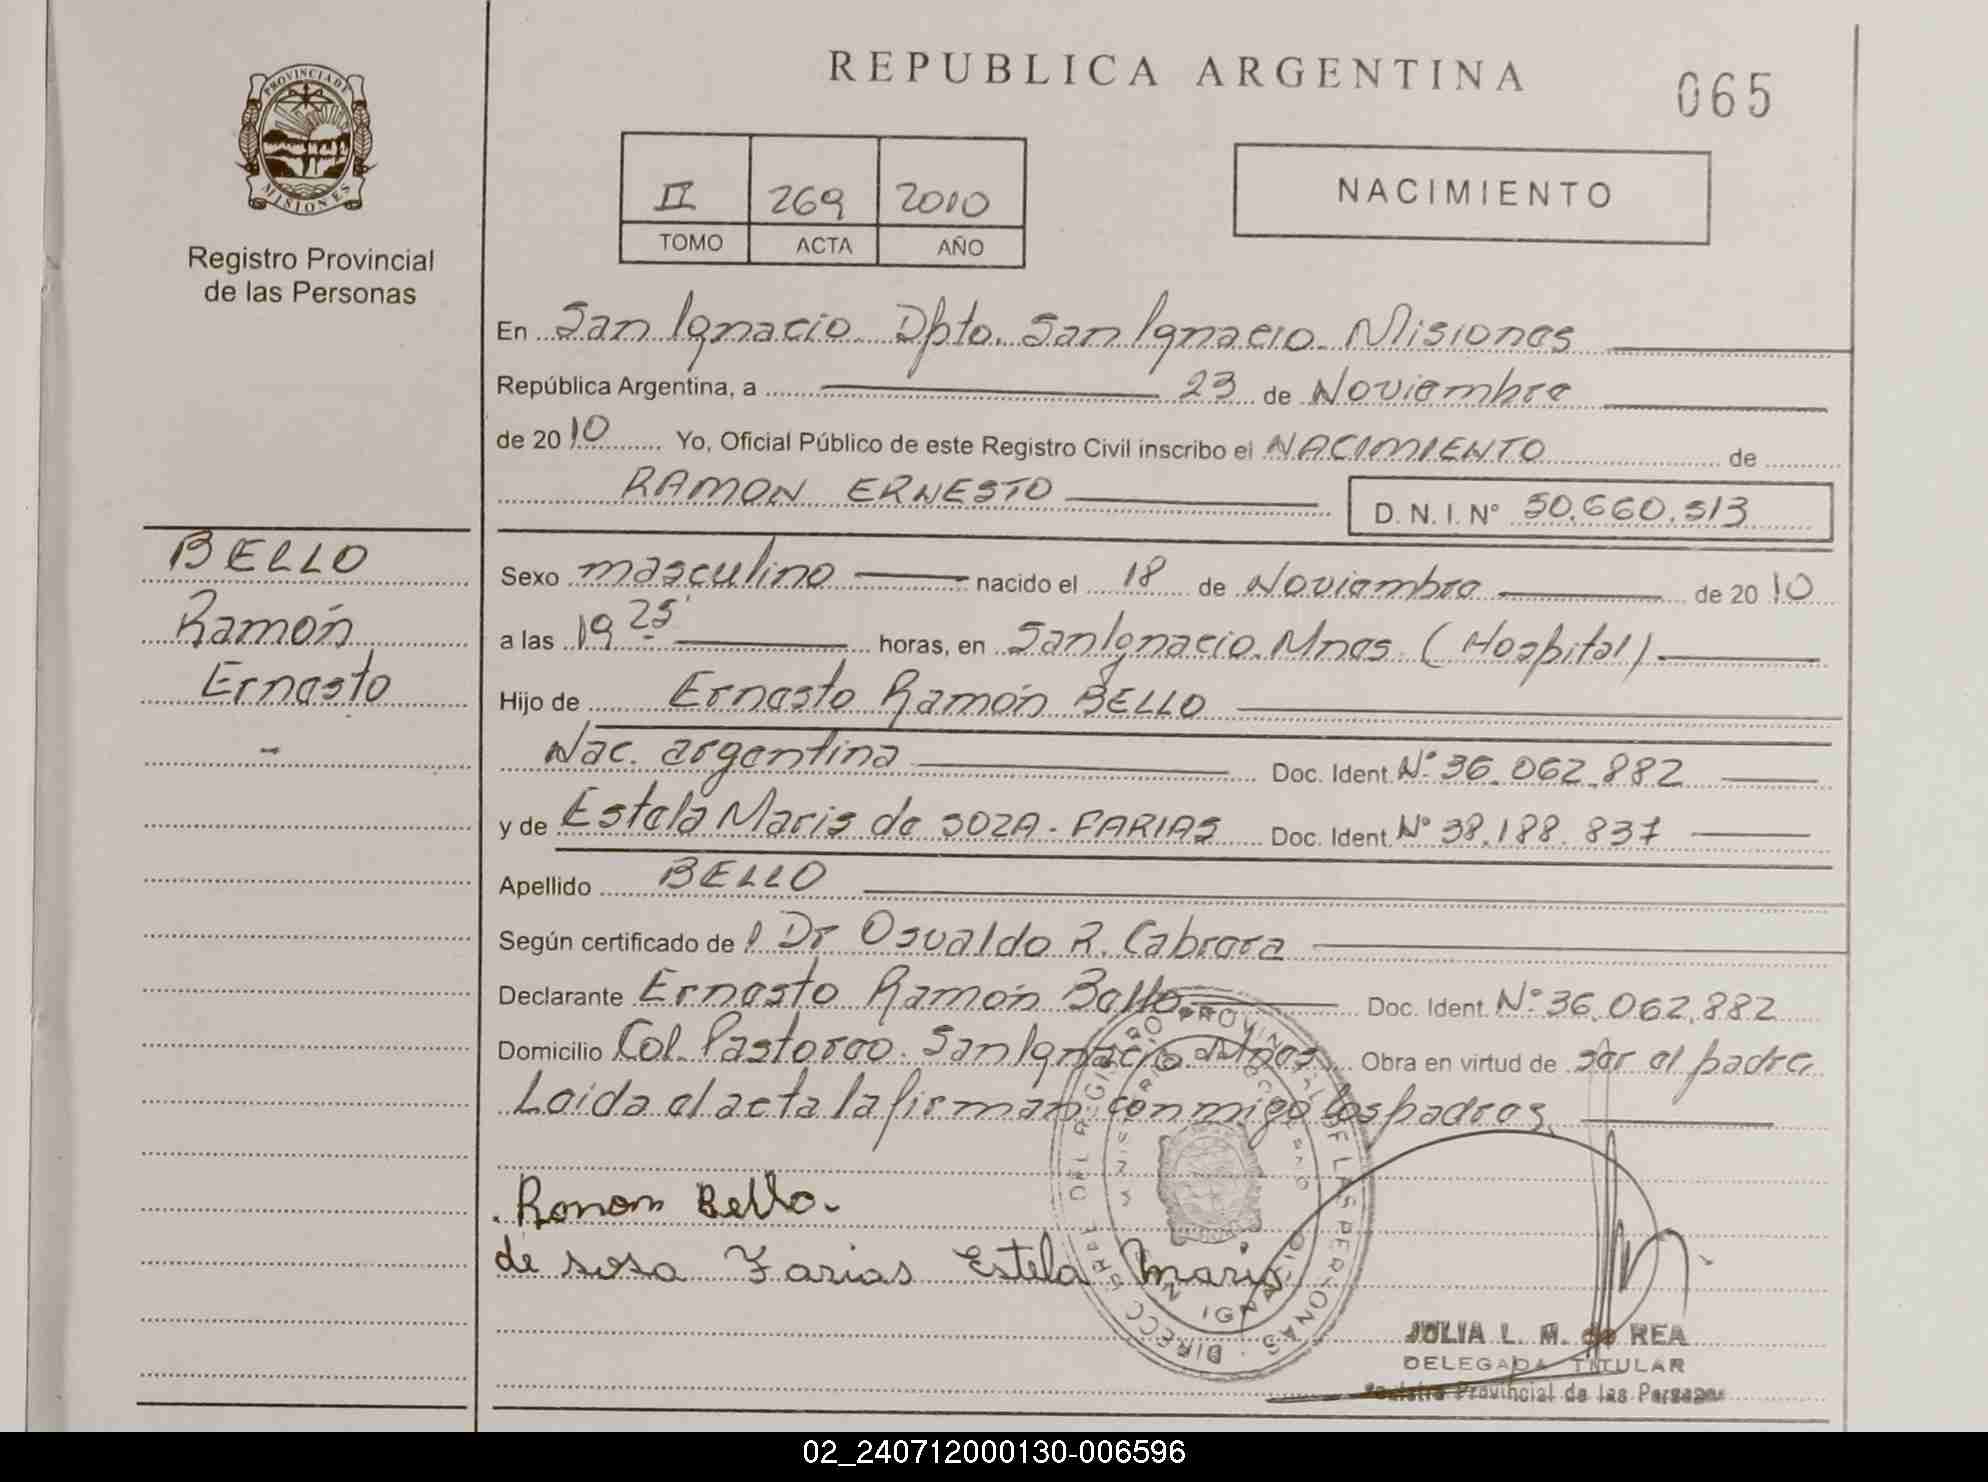 REPUBLICA ARGENTINA
065
PROVINCIA DE MISIONES
Registro Provincial
de las Personas
II 269 2010
TOMO ACTA AÑO
NACIMIENTO
En San Ignacio. Dpto. San Ignacio. Misiones
República Argentina, a 23 de Noviembre
de 2010 Yo, Oficial Público de este Registro Civil inscribo el NACIMIENTO de
RAMON ERNESTO D. N. I. N° 50.660.513
BELLO
Ramón
Ernesto
-
Sexo masculino nacido el 18 de Noviembre de 2010
a las 19 25' horas, en San Ignacio. Mnes. (Hospital)
Hijo de Ernesto Ramón BELLO
Nac. argentina Doc. Ident. N° 36.062.882
y de Estela Maris de SOZA - FARIAS Doc. Ident. N° 38.188.837
Apellido BELLO
Según certificado del Dr Osvaldo R. Cabrera
Declarante Ernesto Ramón Bello Doc. Ident. N° 36.062.882
Domicilio Col. Pastoreo. San Ignacio. Mnes. Obra en virtud de ser el padre
Leida el acta la firman conmigo los padres.
Ramon Bello.
de sosa Farias Estela Maris
DIRECC. GRAL. DEL REGISTRO PROVINCIAL DE LAS PERSONAS
SAN IGNACIO
JULIA L. M. de REA
DELEGADA TITULAR
Registro Provincial de las Personas
02_240712000130-006596